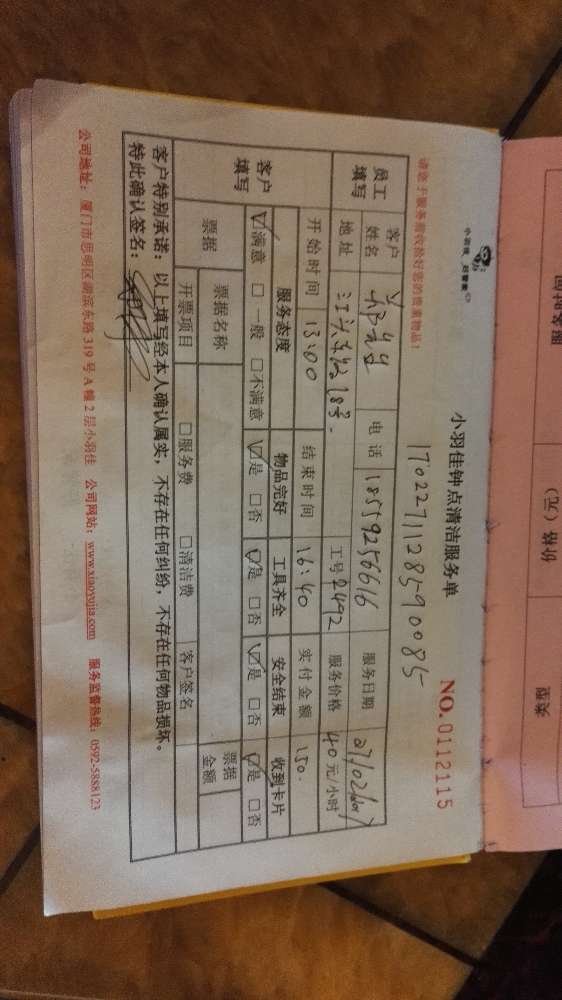 小羽佳钟点清洁服务单
17022711128590085
NO.0112115
请您于服务前收拾好您的贵重物品!
员工填写 客户姓名 电话 18559256616 服务日期 27/02/2017
地址 工号 2492 服务价格 40元/小时
开始时间 13:00 结束时间 16:40 实付金额 150.
客户填写 服务态度 物品完好 工具齐全 安全结束 收到卡片
☑满意 □一般 □不满意 ☑是 □否 ☑是 □否 ☑是 □否 ☑是 □否
票据 票据名称 票据金额
开票项目 □服务费 □清洁费 客户签名
客户特别承诺:以上填写经本人确认属实,不存在任何纠纷,不存在任何物品损坏。
特此确认签名:
公司地址:厦门市思明区湖滨东路 319 号 A 幢 2 层小羽佳 公司网站:www.xiaoyujia.com 服务监督热线:0592-5888123
服务时间
价格(元)